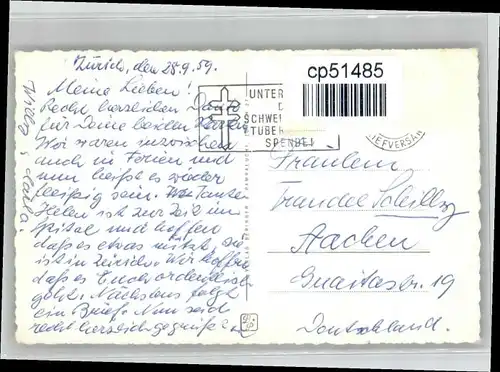 Zürich, den 28.9.59.
Meine Lieben!
Recht herzlichen Dank
für Deine beiden Karten
Wir waren inzwischen
auch in Ferien und
nun heißt es wieder
fleißig sein. Tante
Helen ist zur Zeit im
Spital und hoffen
daß es etwas nützt, sie
ist in Zürich. Wir hoffen
daß es Euch ordentlich
geht. Nächstens folgt
ein Brief. Nun seid
recht herzlich gegrüßt
cp51485
UNTER
SCHWEI
TUBER
SPENDE!
IEFVERSAN
Fräulein
Aachen
Guaitastr. 19
Deutschland.